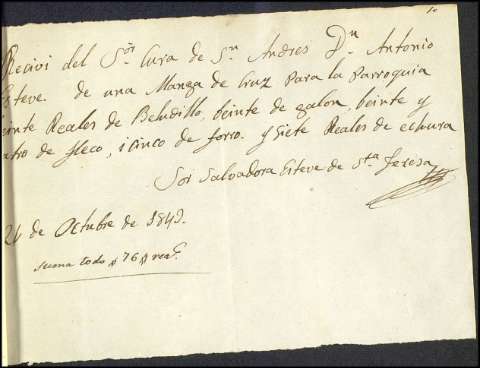 Recivi del Sor. Cura de Sn. Andres Dn. Antonio
Esteve. de una Manga de Cruz Para la Parroquia
veinte Reales de Beludillo, beinte de galon, beinte y
cuatro de fleco, i cinco de forro. y Siete Reales de echura
Sor Salvadora Esteve de Sta. Teresa
24 de Octubre de
suma todo 76